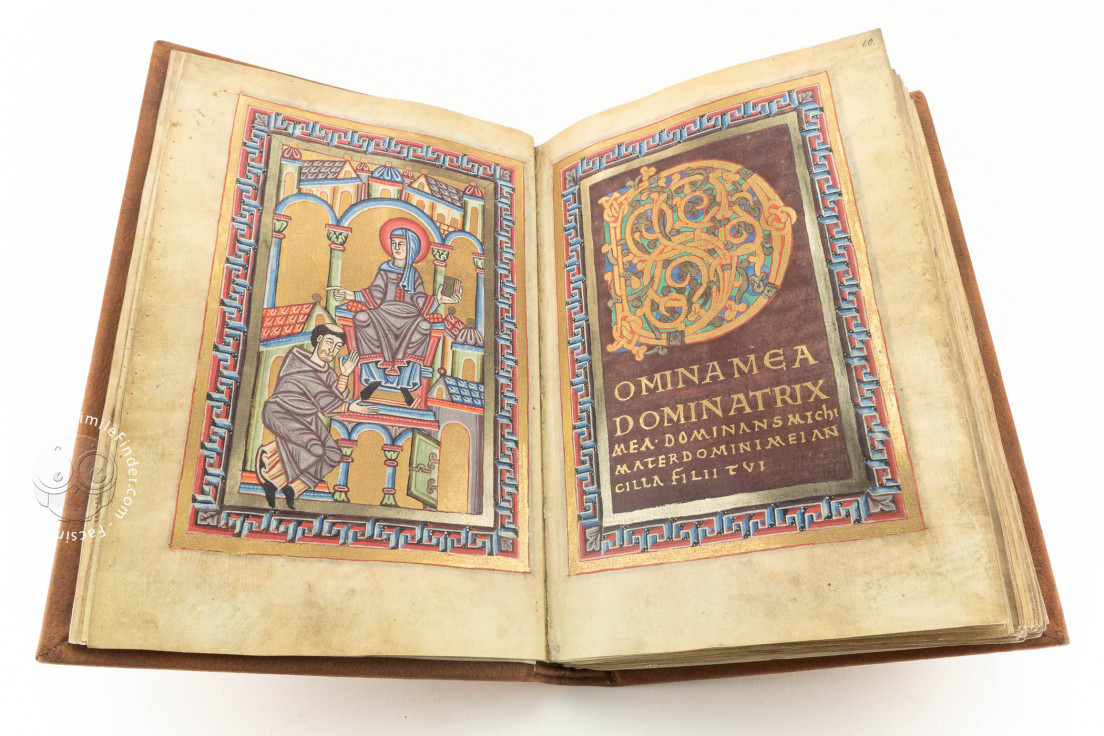 60.
D
OMINA MEA
DOMINATRIX
MEA · DOMINANS MICHI
MATER DOMINI MEI AN
CILLA FILII TVI
similefinder.com - Facsi